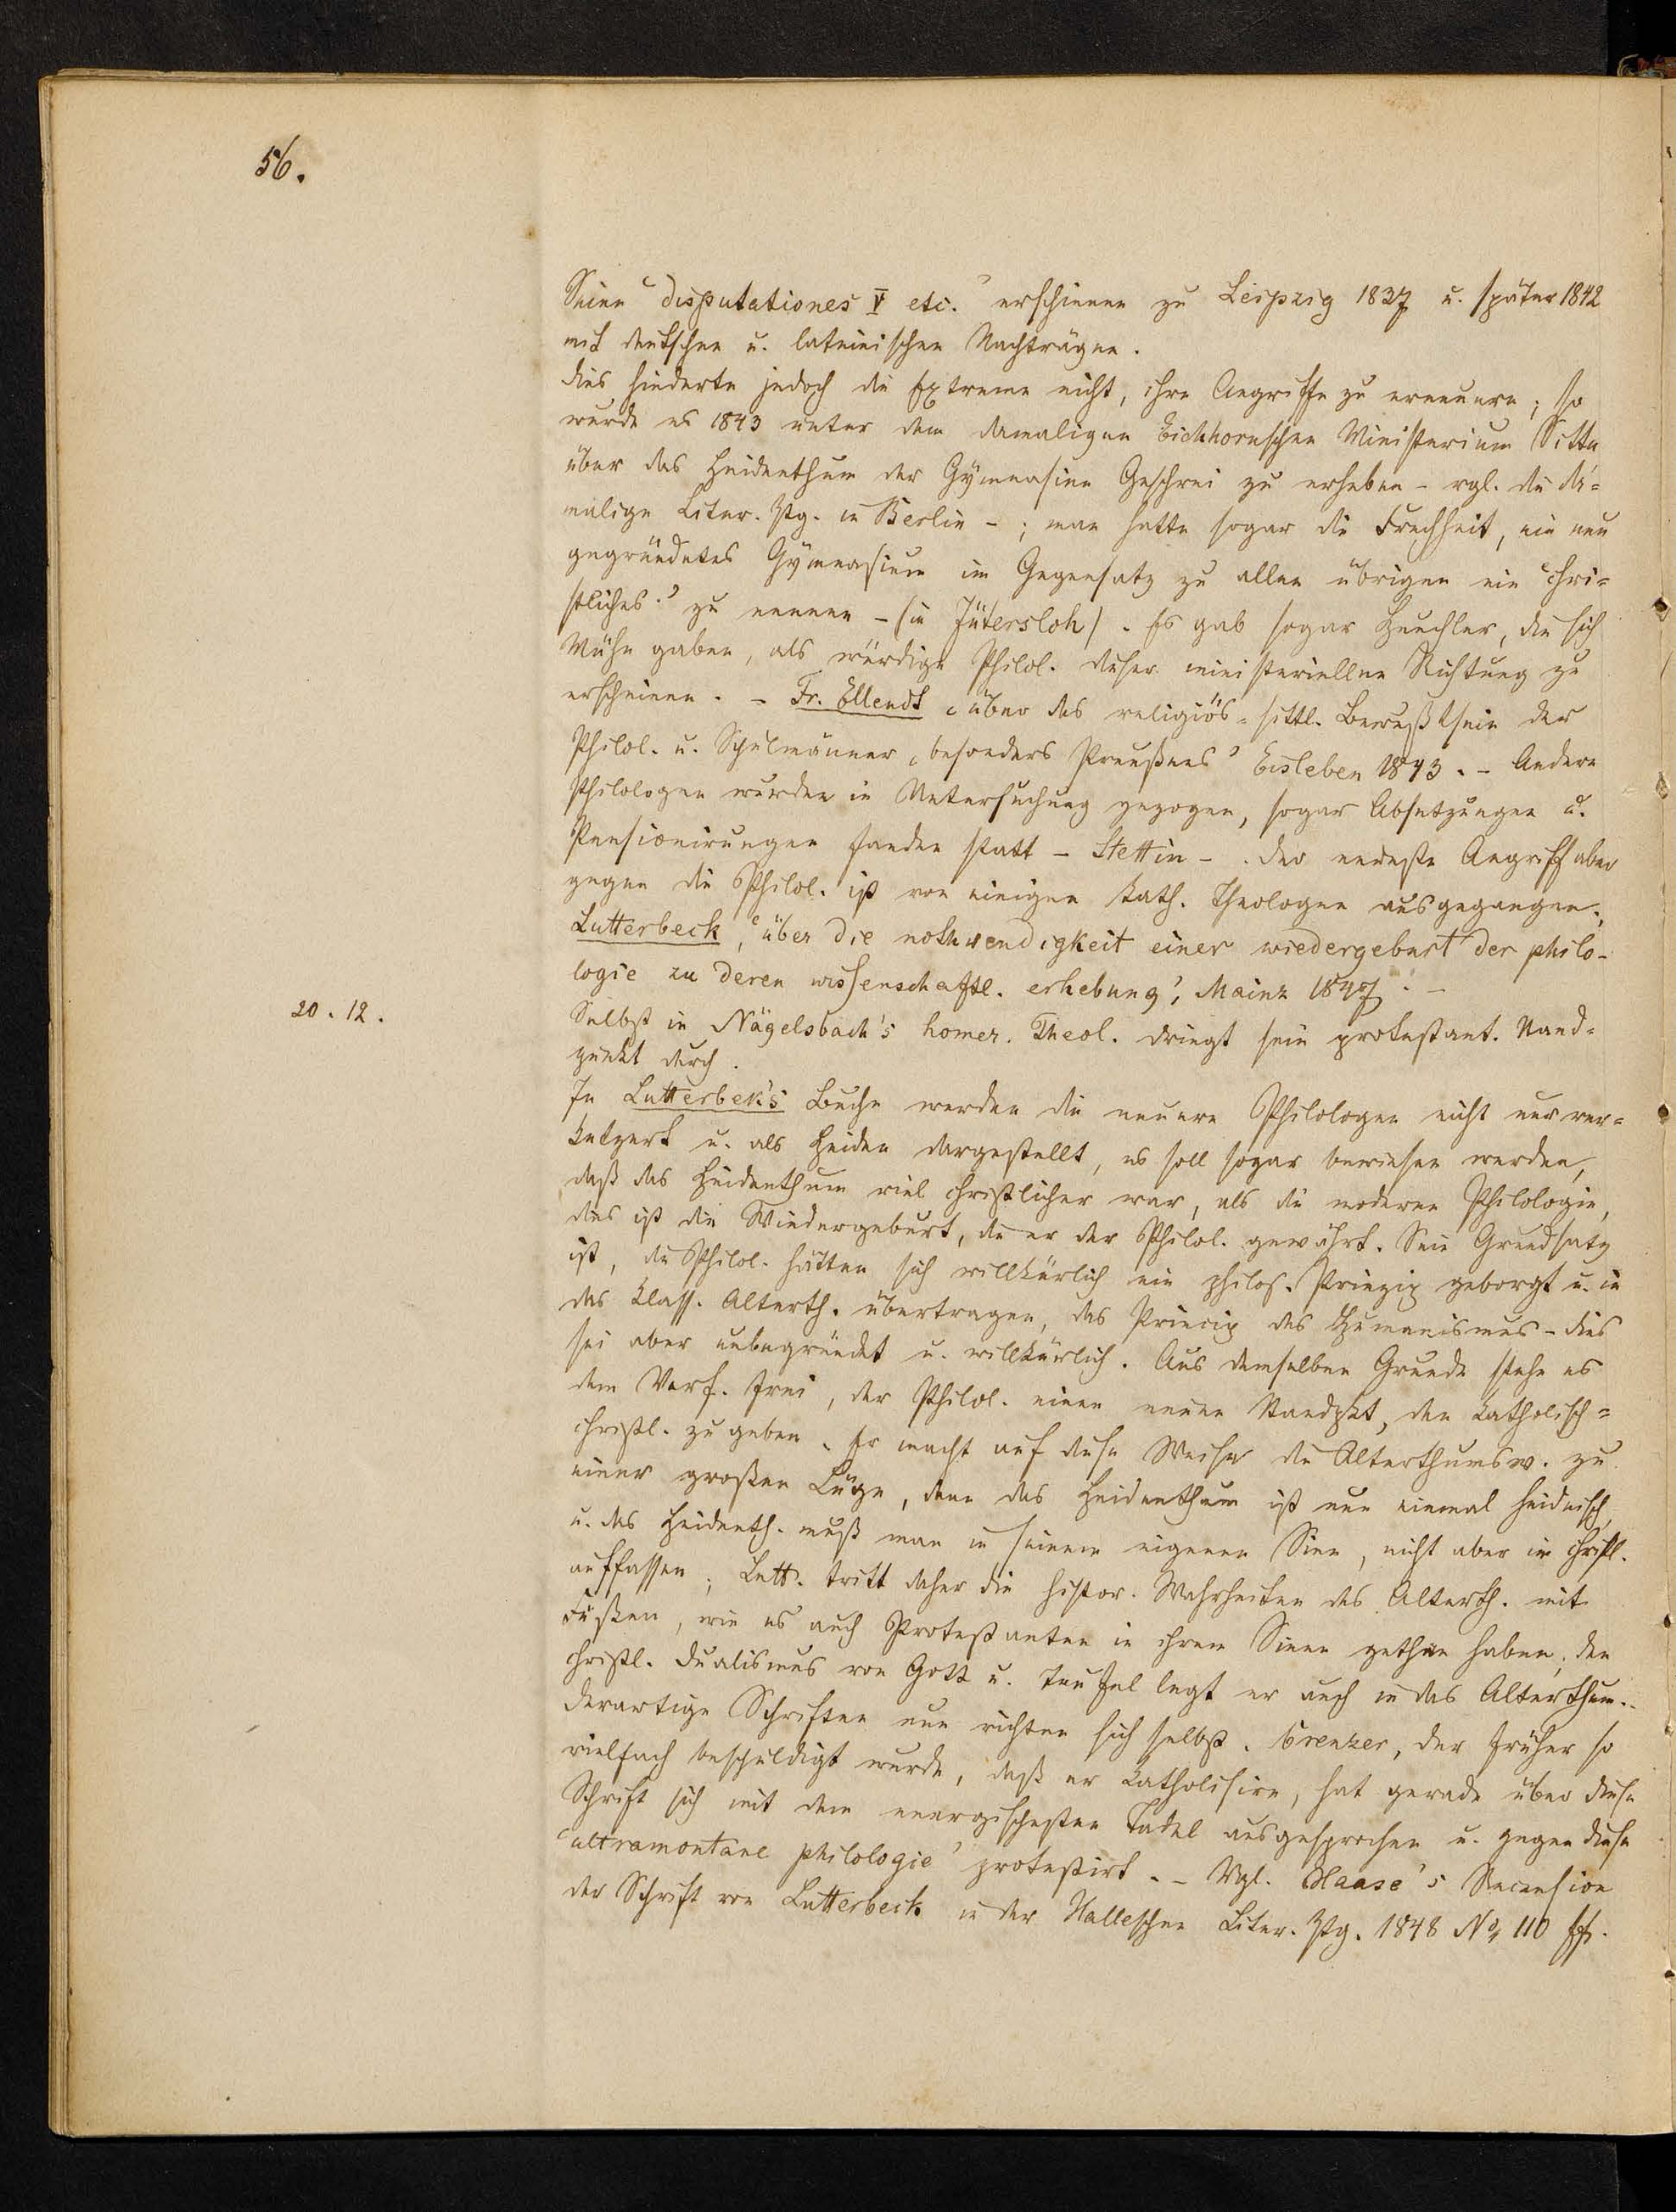 56.
Seine 'disputationes V etc.' erschienen zu Leipzig 1837 u. später 1842
mit deutschen u. lateinischen Nachträgen.
Dies hinderte jedoch die Extreme nicht, ihre Angriffe zu erneuern; so
wurde es 1843 unter dem damaligen Eichhornschen Ministerium Sitte
über das Heidenthum der Gymnasien Geschrei zu erheben - vgl. die da=
malige Liter. Ztg. in Berlin - ; man hatte sogar die Frechheit, ein neu
gegründetes Gymnasium im Gegensatz zu allen übrigen ein 'chri=
stliches' zu nennen - (in Jütersloh). Es gab sogar Heuchler, die sich
Mühe gaben, als würdige Philol. dieser ministeriellen Richtung zu
erscheinen. - Fr. Ellendt 'über das religiös-sittl. Bewußtsein der
Philol. u. Schulmänner, besonders Preußens' Eisleben 1843. - Andere
Philologen wurden in Untersuchung gezogen, sogar Absetzungen u.
Pensionirungen fanden statt - Stettin - . Der neueste Angriff aber
gegen die Philol. ist von einigen kath. Theologen ausgegangen.
Lutterbeck, 'über die nothwendigkeit einer wiedergeburt der philo-
logie zu deren wissenschaftl. erhebung', Mainz 1847. -
20. 12.
Selbst in Nägelsbach's homer. Theol. dringt sein protestant. Stand=
punkt durch.
In Lutterbek's Buche werden die neuern Philologen nicht nur ver=
ketzert u. als Heiden dargestellt, es soll sogar bewiesen werden,
daß das Heidenthum viel christlicher war, als die moderne Philologie,
dies ist die Wiedergeburt, die er der Philol. gewährt. Sein Grundsatz
ist, die Philol. hätten sich willkürlich ein philos. Prinzip geborgt u. in
das klass. Alterth. übertragen, das Princip des Humanismus - dies
sei aber unbegründet u. willkürlich. Aus demselben Grunde stehe es
dem Verf. frei, der Philol. einen neuen Standpkt, den katholisch=
christl. zu geben. Er macht auf diese Weise die Alterthumsw. zu
einer großen Lüge, denn das Heidenthum ist nun einmal heidnisch,
u. das Heidenth. muß man in seinem eigenen Sinn, nicht aber im christl.
auffassen; Lutt. tritt daher die histor. Wahrheiten des Alterth. mit
Füßen, wie es auch Protestanten in ihrem Sinne gethan haben; den
christl. Dualismus von Gott u. Teufel legt er auch in das Alterthum.
Derartige Schriften nun richten sich selbst. Creuzer, der früher so
vielfach beschuldigt wurde, daß er katholisire, hat gerade über diese
Schrift sich mit dem energischesten Tadel ausgesprochen u. gegen diese
'ultramontane philologie' protestirt. - Vgl. Haase's Recension
der Schrift von Lutterbeck in der Halleschen Liter. Ztg. 1848 No, 110 ff.